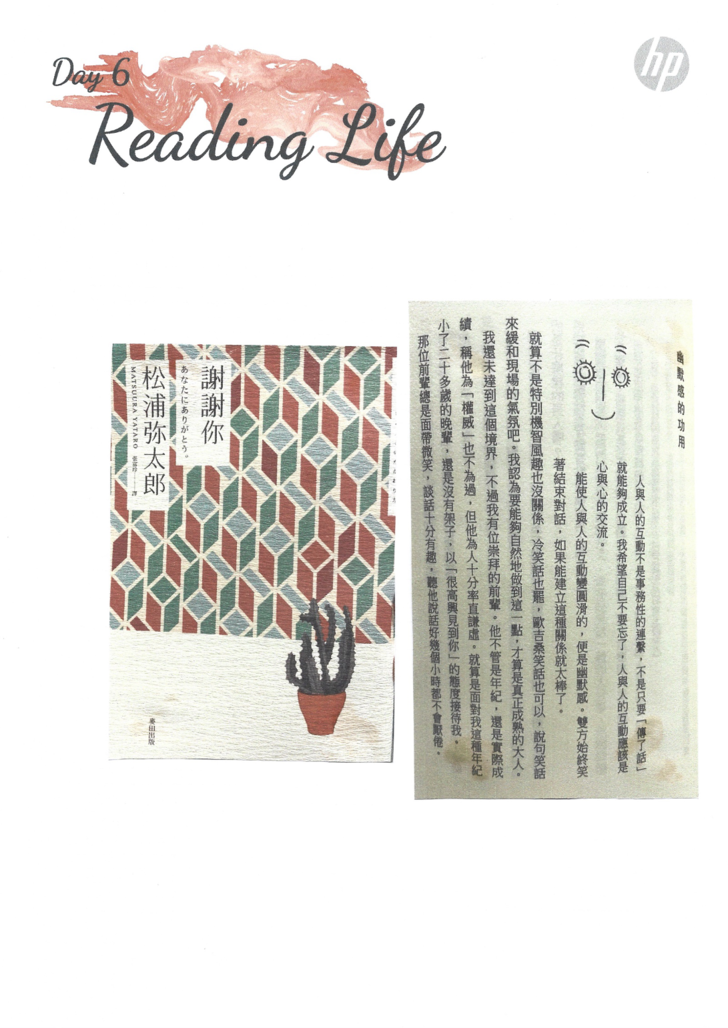 Day 6
Reading Life
hp
謝謝你
あなたにありがとう。
松浦弥太郎
MATSUURA YATARO
張富玲——譯
麥田出版
幽默感的功用
人與人的互動不是事務性的連繫，不是只要「傳了話」
就能夠成立。我希望自己不要忘了，人與人的互動應該是
心與心的交流。
能使人與人的互動變圓滑的，便是幽默感。雙方始終笑
著結束對話，如果能建立這種關係就太棒了。
就算不是特別機智風趣也沒關係，冷笑話也罷，歐吉桑笑話也可以，說句笑話
來緩和現場的氣氛吧。我認為要能夠自然地做到這一點，才算是真正成熟的大人。
我還未達到這個境界，不過我有位崇拜的前輩。他不管是年紀，還是實際成
績，稱他為「權威」也不為過，但他為人十分率直謙虛。就算是面對我這種年紀
小了二十多歲的晚輩，還是沒有架子，以「很高興見到你」的態度接待我。
那位前輩總是面帶微笑，談話十分有趣，聽他說話好幾個小時都不會厭倦。